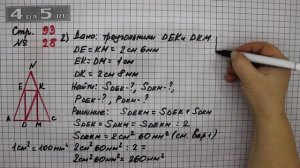 4DA5.RU
Стр. 93
№ 28
2) Дано: треугольники DEK и DKM
DE = KM = 2 см 6 мм
EK = DM = 1 см
DK = 2 см 8 мм
Найти: SDEK - ?, SDKM - ?,
PDEK - ?, PDKM - ?
Решение: SDEKM = SDEK + SDKM
SDEK = SDKM = SDEKM : 2
SDEKM = 2 см² 60 мм² (см. вар. 1)
1 см² = 100 мм²
2 см² 60 мм² : 2 =
2 см² 60 мм² = 260 мм²
N
E
K
A
D
M
C